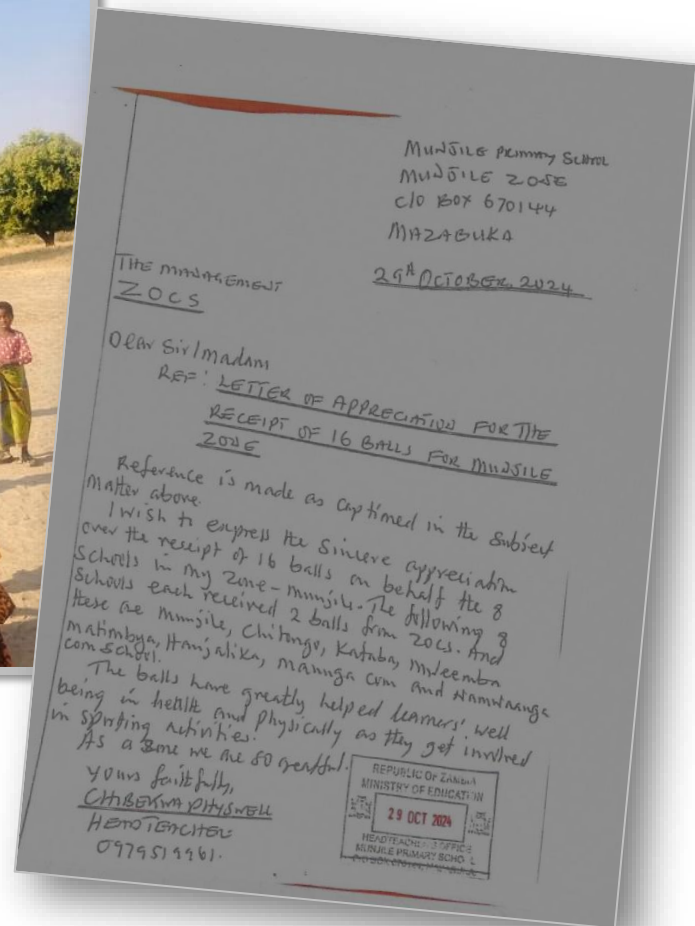 MUNJILE PRIMARY SCHOOL
MUNJILE ZONE
C/O BOX 670144
MAZABUKA
29th OCTOBER, 2024
THE MANAGEMENT
ZOCS
Dear Sir/Madam
REF: LETTER OF APPRECIATION FOR THE
RECEIPT OF 16 BALLS FOR MUNJILE
ZONE
Reference is made as captioned in the Subject
Matter above.
I wish to express the Sincere appreciation
over the receipt of 16 balls on behalf the 8
Schools in my Zone - Munjile. The following 8
Schools each received 2 balls from Zocs. And
these are Munjile, Chitongo, Kataba,
Matimbya, Hanjalika, Mannga com and Namwaanga
com School.
The balls have greatly helped learners' well
being in health and physically as they get involved
in sporting activities.
As a zone we are so greatful.
Yours faithfully,
HEADTEACHER
0979519961.
REPUBLIC OF ZAMBIA
MINISTRY OF EDUCATION
29 OCT 2024
HEADTEACHER'S OFFICE
MUNJILE PRIMARY SCHOOL